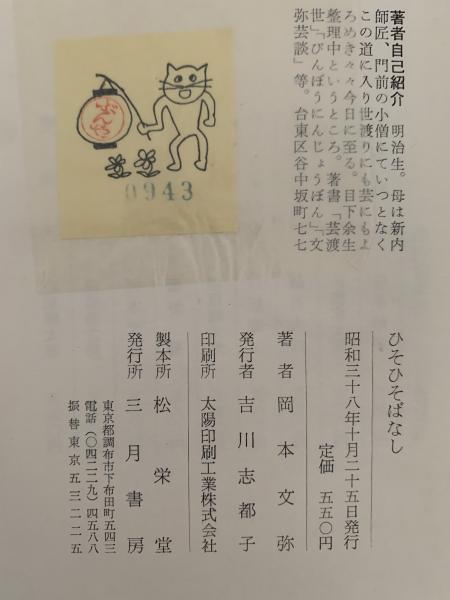 著者自己紹介　明治生。母は新内
師匠、門前の小僧にていつとなく
この道に入り世渡りにも芸にもよ
ろめき々々今日に至る。目下余生
整理中というところ。著書「芸渡
世」「びんぼうにんじょうぼん」「文
弥芸談」等。台東区谷中坂町七七
ぶんや
0943
ひそひそばなし
昭和三十八年十月二十五日発行
定価　五五〇円
著者　岡本文弥
発行者　吉川志都子
印刷所　太陽印刷工業株式会社
製本所　松栄堂
発行所　三月書房
東京都調布市下布田町五四三
電話（〇四二二九）四五八八
振替東京五三二二五